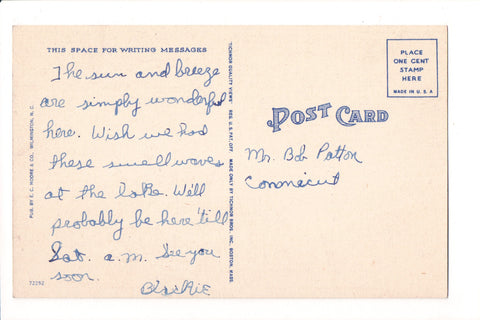 THIS SPACE FOR WRITING MESSAGES
The sun and breeze
are simply wonderful
here. Wish we had
these swell waves
at the lake. We'll
probably be here 'till
Sat. a.m. See you
soon.
PUB. BY E. C. MOORE & CO., WILMINGTON, N. C.
72292
TICHNOR QUALITY VIEWS REG. U. S. PAT. OFF. MADE ONLY BY TICHNOR BROS., INC., BOSTON, MASS.
POST CARD
PLACE
ONE CENT
STAMP
HERE
MADE IN U.S.A
Mr. Bob Patton
Conmicut